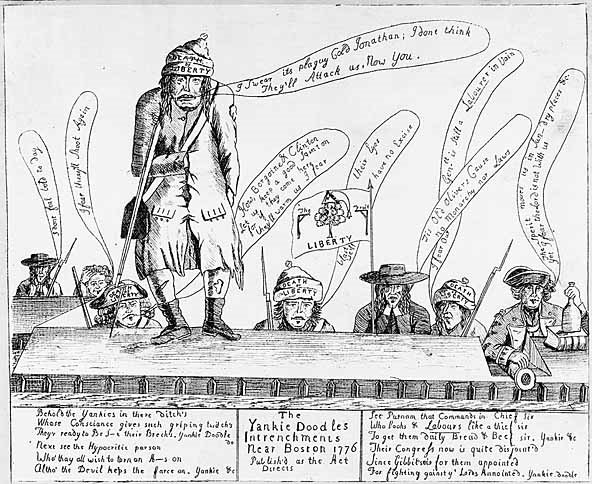 I Swear its plaguy Cold Jonathan; I dont think
They'll Attack us, Now You.
DEATH
or
LIBERTY
I dont feel bold to day
I fear they'll Shoot Again
How Borgoine & Clinton
if they come here
they'll warm us I fear
have no Excuse
The
Tree
LIBERTY
DEATH
or
LIBERTY
is still a Labourer in Vain
Tis Old Olivers Cause
No Monarchy nor Laws
The Spirit moves us in
places &c
I fear the Lord is not with us
DEATH
or
LIBERTY
Behold the Yankies in there ditch's
Whose Conscience gives such griping twitch's
They'r ready to Be S—t their Brech's. Yankie Doodle do
Next see the Hypocritic parson
Who thay all wish to turn an A—s on
Altho' the Devil keeps the farce on. Yankie &c
The
Yankie Doodles
Intrenchments
Near Boston 1776
Publish'd as the Act
Directs
See Putnam that Commands in Chief Sir
Who looks & Labours like a thief sir
To get them daily Bread & Beef sir. Yankie &c
Their Congress now is quite disjointed
Since Gibbits is for them appointed
For fighting gainst ye Lords Annointed. Yankie doodle